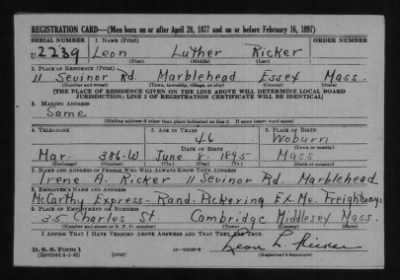 REGISTRATION CARD—(Men born on or after April 28, 1877 and on or before February 16, 1897)
SERIAL NUMBER 1. NAME (Print) ORDER NUMBER
U 2239 Leon Luther Ricker
(First) (Middle) (Last)
2. PLACE OF RESIDENCE (Print)
11 Sevinor Rd. Marblehead Essex Mass.
(Number and street) (Town, township, village, or city) (County) (State)
[THE PLACE OF RESIDENCE GIVEN ON THE LINE ABOVE WILL DETERMINE LOCAL BOARD
JURISDICTION; LINE 2 OF REGISTRATION CERTIFICATE WILL BE IDENTICAL]
3. MAILING ADDRESS
Same
[Mailing address if other than place indicated on line 2. If same insert word same]
4. TELEPHONE 5. AGE IN YEARS 6. PLACE OF BIRTH
46 Woburn
DATE OF BIRTH (Town or county)
Mar- 386-W June 8- 1895 Mass
(Exchange) (Number) (Mo.) (Day) (Yr.) (State or country)
7. NAME AND ADDRESS OF PERSON WHO WILL ALWAYS KNOW YOUR ADDRESS
Irene A. Ricker 11 Sevinor Rd. Marblehead
8. EMPLOYER'S NAME AND ADDRESS
McCarthy Express- Rand-Pickering Ex- Me. Freightways
9. PLACE OF EMPLOYMENT OR BUSINESS
35 Charles St. Cambridge Middlesex Mass.
(Number and street or R. F. D. number) (Town) (County) (State)
I AFFIRM THAT I HAVE VERIFIED ABOVE ANSWERS AND THAT THEY ARE TRUE.
D. S. S. Form 1
(Revised 4-1-42) Leon L. Ricker